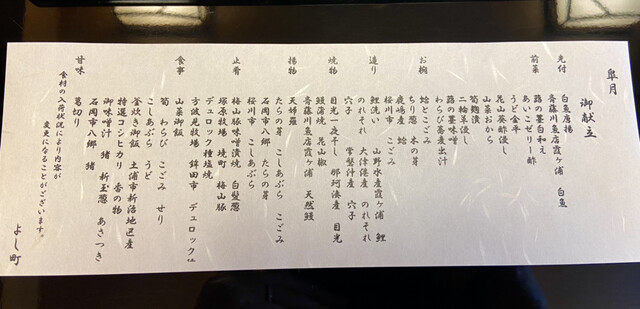 皐月
御献立
先付 白魚唐揚
斉藤川魚店霞ヶ浦 白魚
前菜 蕗の薹白和え
あいこゼリー酢
うど金平
花山葵酢浸し
山菜おから
筍麹浸し
二輪草浸し
蕗の薹味噌
わらび蕎麦出汁
お椀 蛤とこごみ
ちり葱 木の芽
鹿嶋産 蛤
桜川市 こごみ
造り 鯉洗い 山野水産霞ヶ浦 鯉
のれそれ 大津港産 のれそれ
穴子 常磐沖産 穴子
焼物 目光一夜干し 那珂湊産 目光
鰻蒲焼 花山椒
斉藤川魚店霞ヶ浦 天然鰻
揚物 天婦羅
たらの芽 こしあぶら こごみ
石岡市八郷 たらの芽
桜川市 こしあぶら
止肴 梅山豚味噌漬焼 白髪葱
塚原牧場 境町 梅山豚
デュロック種塩焼
方波見牧場 鉾田市 デュロック種
食事 山菜御飯
筍 わらび こごみ せり
こしあぶら うど
釜炊き御飯 土浦市新治地区産
特選コシヒカリ 香の物
御味噌汁 猪 新玉葱 あさつき
石岡市八郷 猪
甘味 葛切り
食材の入荷状況により内容が
変更になることがございます。
よし町